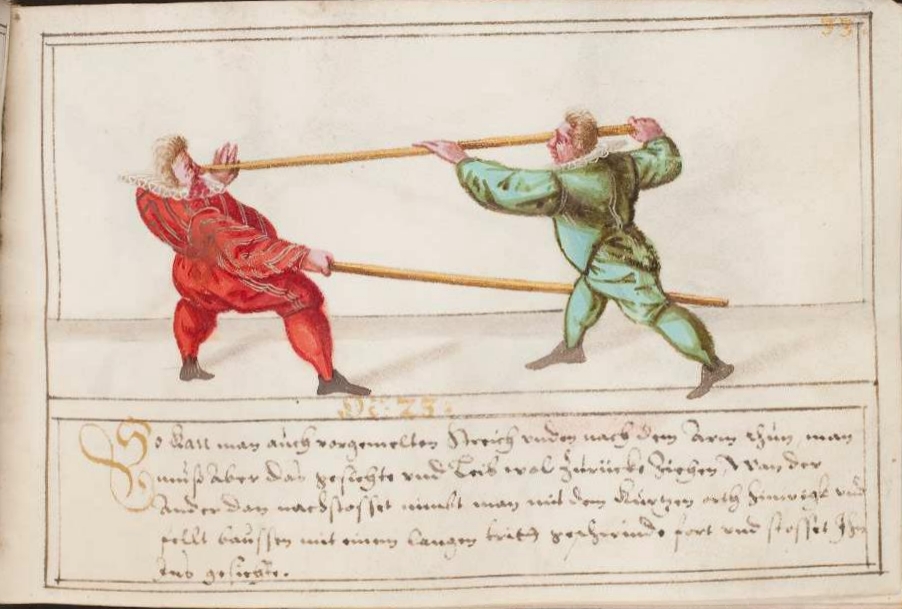 33
No: 23:
So kan man auch vorgemelten streich unden nach dem Arm thun, man
muß Aber das gesichte vnd Leib wol zurücke ziehen, Wan der
Ander dan nachstosset nimbt man mit dem kurtzen orth hinwegk vnd
fellt daussen mit einem langen tritt geschwinde fort vnd stosset Ihn
Ins gesichte.